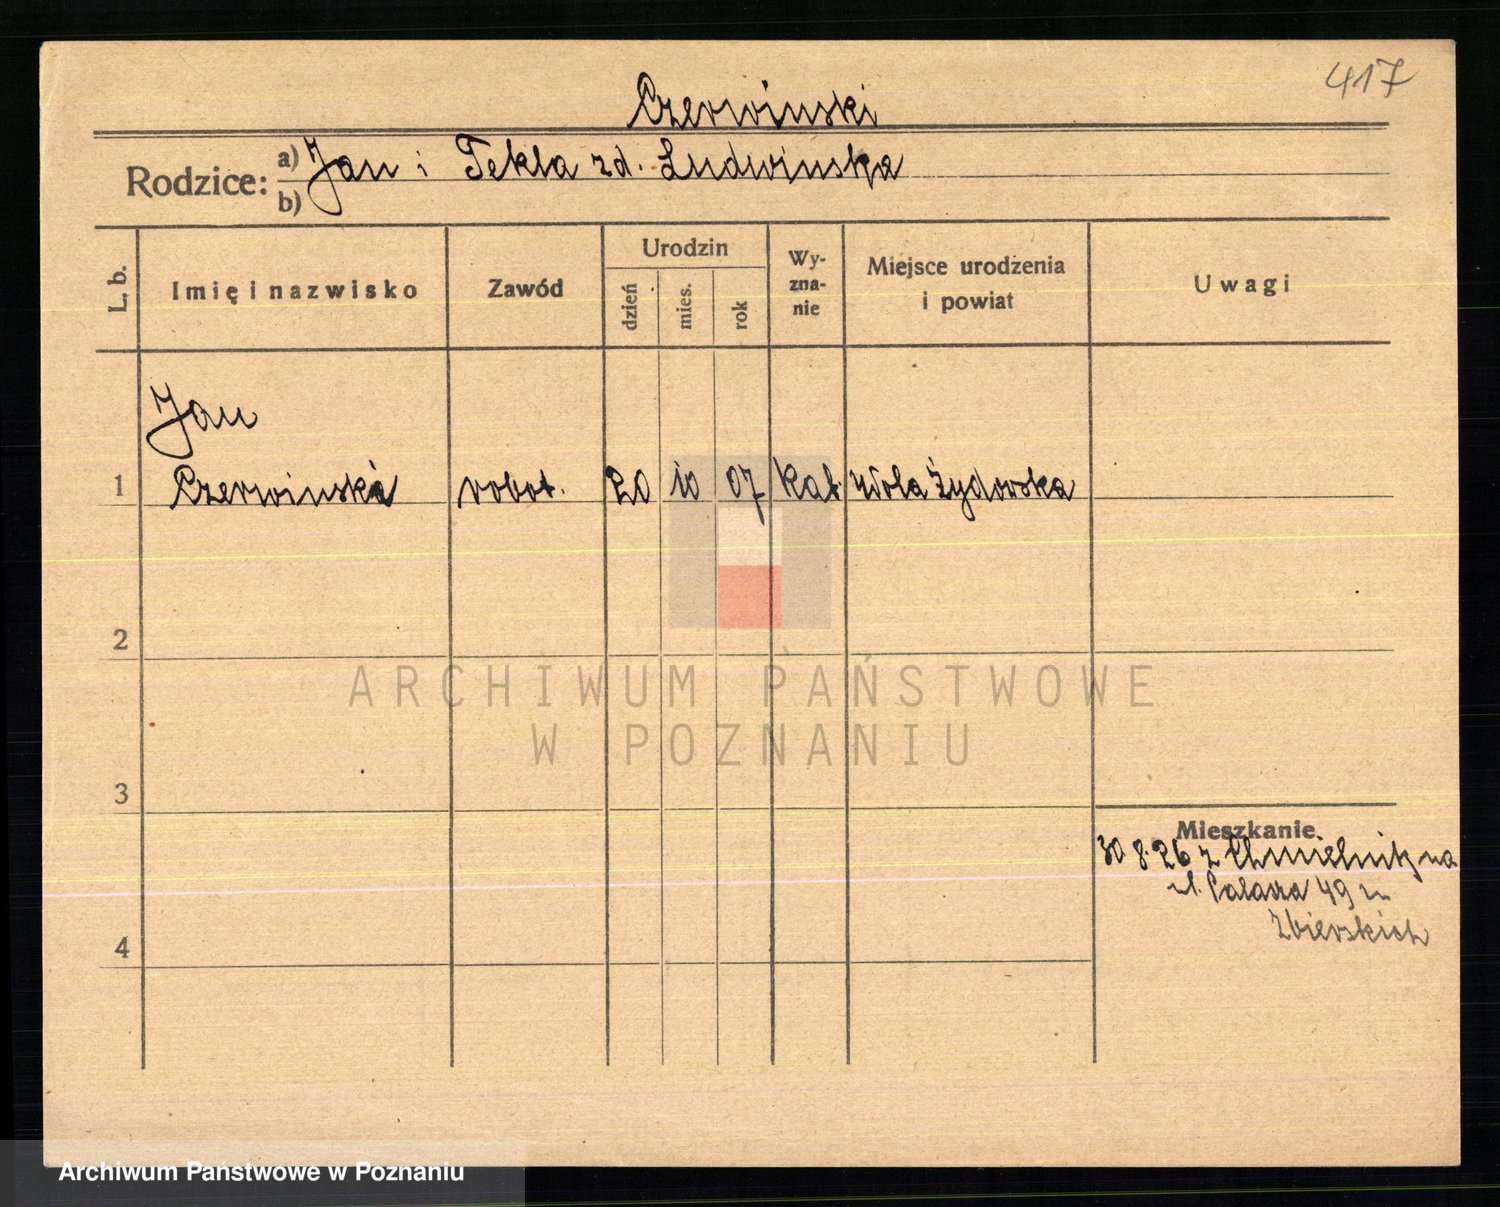 417
Czerwinski
Rodzice: a) Jan i Tekla zd. Ludwinska
b)
L. b. Imię i nazwisko Zawód Urodzin dzień mies. rok Wy-zna-nie Miejsce urodzenia i powiat Uwagi
Jan
1 Czerwinski robot. 20 10 07 kat Wola Żydowska
2
ARCHIWUM PAŃSTWOWE
W POZNANIU
3
Mieszkanie
30 8.26 z Chmielnik na
ul. 49
Zbierskich
4
Archiwum Państwowe w Poznaniu